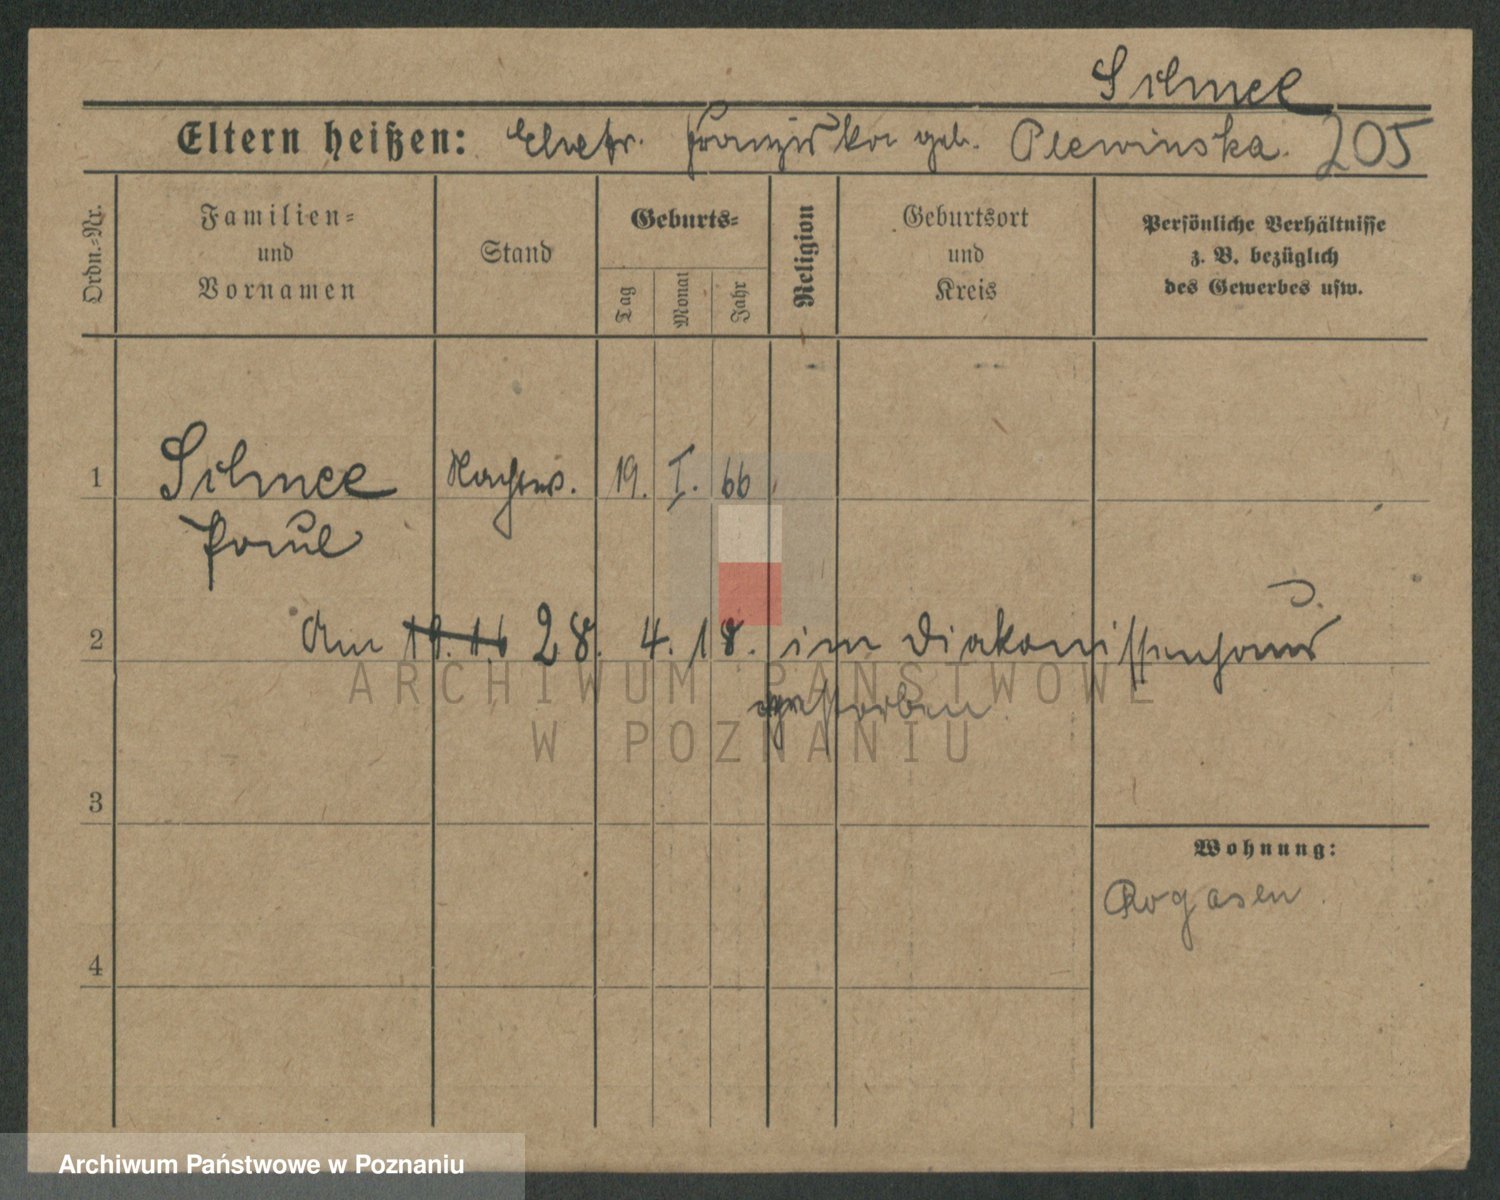 Silmee
Eltern heißen: Ehefr. Franziska geb. Plewinska. 205
Ordn.=Nr.
Familien=
und
Vornamen
Stand
Geburts=
Tag
Monat
Jahr
Religion
Geburtsort
und
Kreis
Persönliche Verhältnisse
z. B. bezüglich
des Gewerbes usw.
1 19. I. 66
Paul
2 Am 28. 4. 18. im Diakonissenhaus
gestorben
ARCHIWUM PAŃSTWOWE
W POZNANIU
3
Wohnung:
Rogasen
4
Archiwum Państwowe w Poznaniu